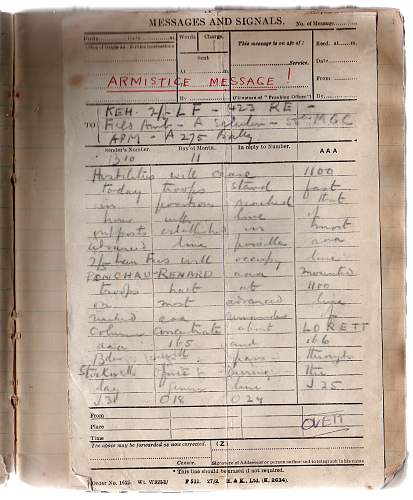 MESSAGES AND SIGNALS. No. of Message
Prefix Code at m. Words Charge. This message is on a/c of: Recd. at m.
Office of Origin and Service Instructions Sent Date
At m. Service. From
ARMISTICE MESSAGE !
By (Signature of "Franking Officer") By
TO KEH. 2/- LF - 422 RE -
A 275 Batty
Sender's Number. Day of Month. In reply to Number. AAA
11
Hostilities will cease 1100
today troops stand fast
in position reached that
hour with line of
outposts established in most
advanced line possible aaa
2/- Lan Fus will occupy line
PONCHAU RENARD aaa mounted
troops halt at 1100
on most advanced line
reached aaa remainder of
Column concentrate about LORETT
aaa 165 and 166
Bdes will pass through
the
day line J 25
J 31 O 18 O 24
From
Place
Time
OVER
The above may be forwarded as now corrected. (Z)
Censor. Signature of Addressor or person authorised to telegraph in his name
* This line should be erased if not required.
Order No. 1625